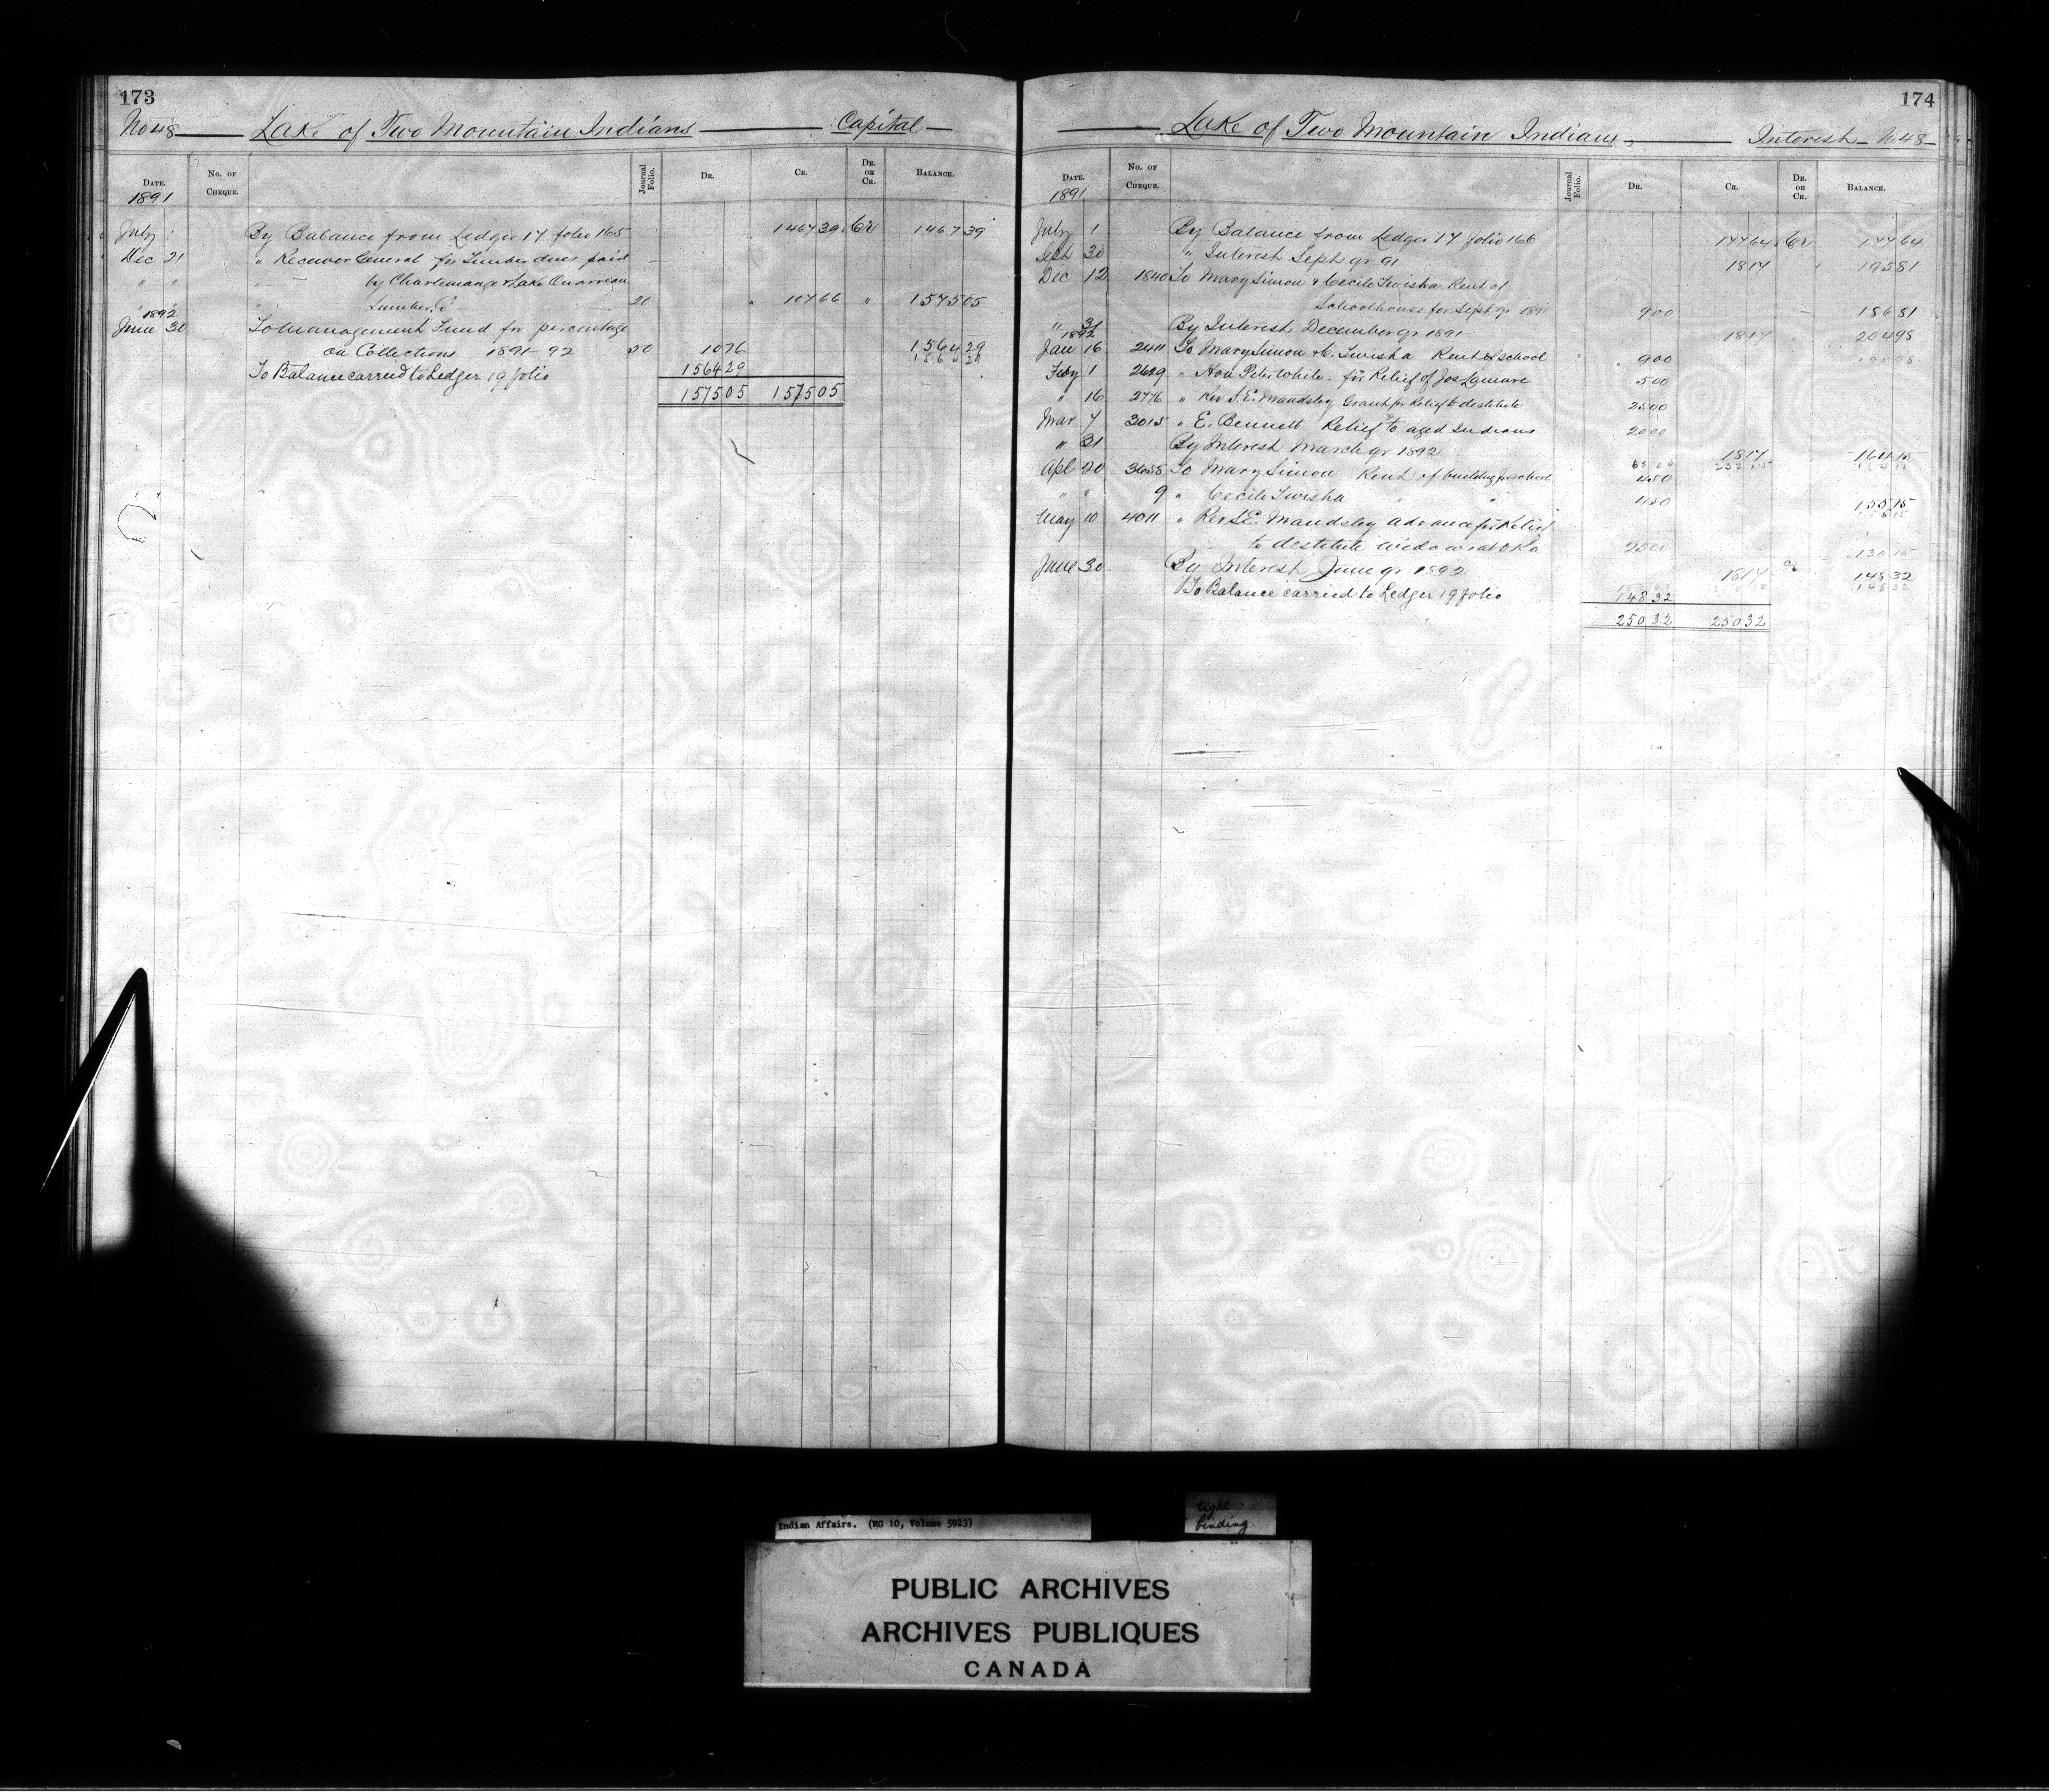 173
No 48 Lake of Two Mountain Indians Capital
DATE. No. OF CHEQUE. Journal Folio. DR. CR. DR. OR CR. BALANCE.
1891
July 1 By Balance from Ledger 17 folio 165 1467 39 Cr 1467 39
Dec 21 " Receiver General for Timber dues paid
" " " by Charlemange & Lake Ouareau
" " " Lumber Co 20 " 107 66 " 1575 05
1892
June 30 To Management Fund for percentage
on Collections 1891-92 50 10 76 1564 29
To Balance carried to Ledger 19 folio 1564 29
1575 05 1575 05
174
Lake of Two Mountain Indians Interest No 48
DATE. No. OF CHEQUE. Journal Folio. DR. CR. DR. OR CR. BALANCE.
1891
July 1 By Balance from Ledger 17 folio 166 177 64 Cr 177 64
Sept 30 " Interest Sept qr 91 18 17 " 195 81
Dec 12 1840 To Mary Simon & Cecile Twisha Rent of
Schoolhouse for Sept qr 1891 9 00 186 81
" 31 By Interest December qr 1891 18 17 204 98
1892
Jan 16 2411 To Mary Simon & C. Twisha Rent of school 9 00
Feby 1 2629 " Hon Peter White for Relief of Jos Lamure 5 00
" 16 2776 " Rev S.E. Maudsley Grant for Relief to destitute 25 00
Mar 7 3015 " E. Bennett Relief to aged Indians 20 00
" 31 By Interest March qr 1892 18 17 164 15
Apl 20 3658 To Mary Simon Rent of building for school 4 50
" " 9 " Cecile Twisha " " 4 50 155 15
May 10 4011 " Rev S.E. Maudsley advance for Relief
to destitute widows at Oka 25 00 130 15
June 30 By Interest June qr 1892 18 17 Cr 148 32
To Balance carried to Ledger 19 folio 148 32
250 32 250 32
Indian Affairs. (RG 10, Volume 5923)
tight
binding
PUBLIC ARCHIVES
ARCHIVES PUBLIQUES
CANADA